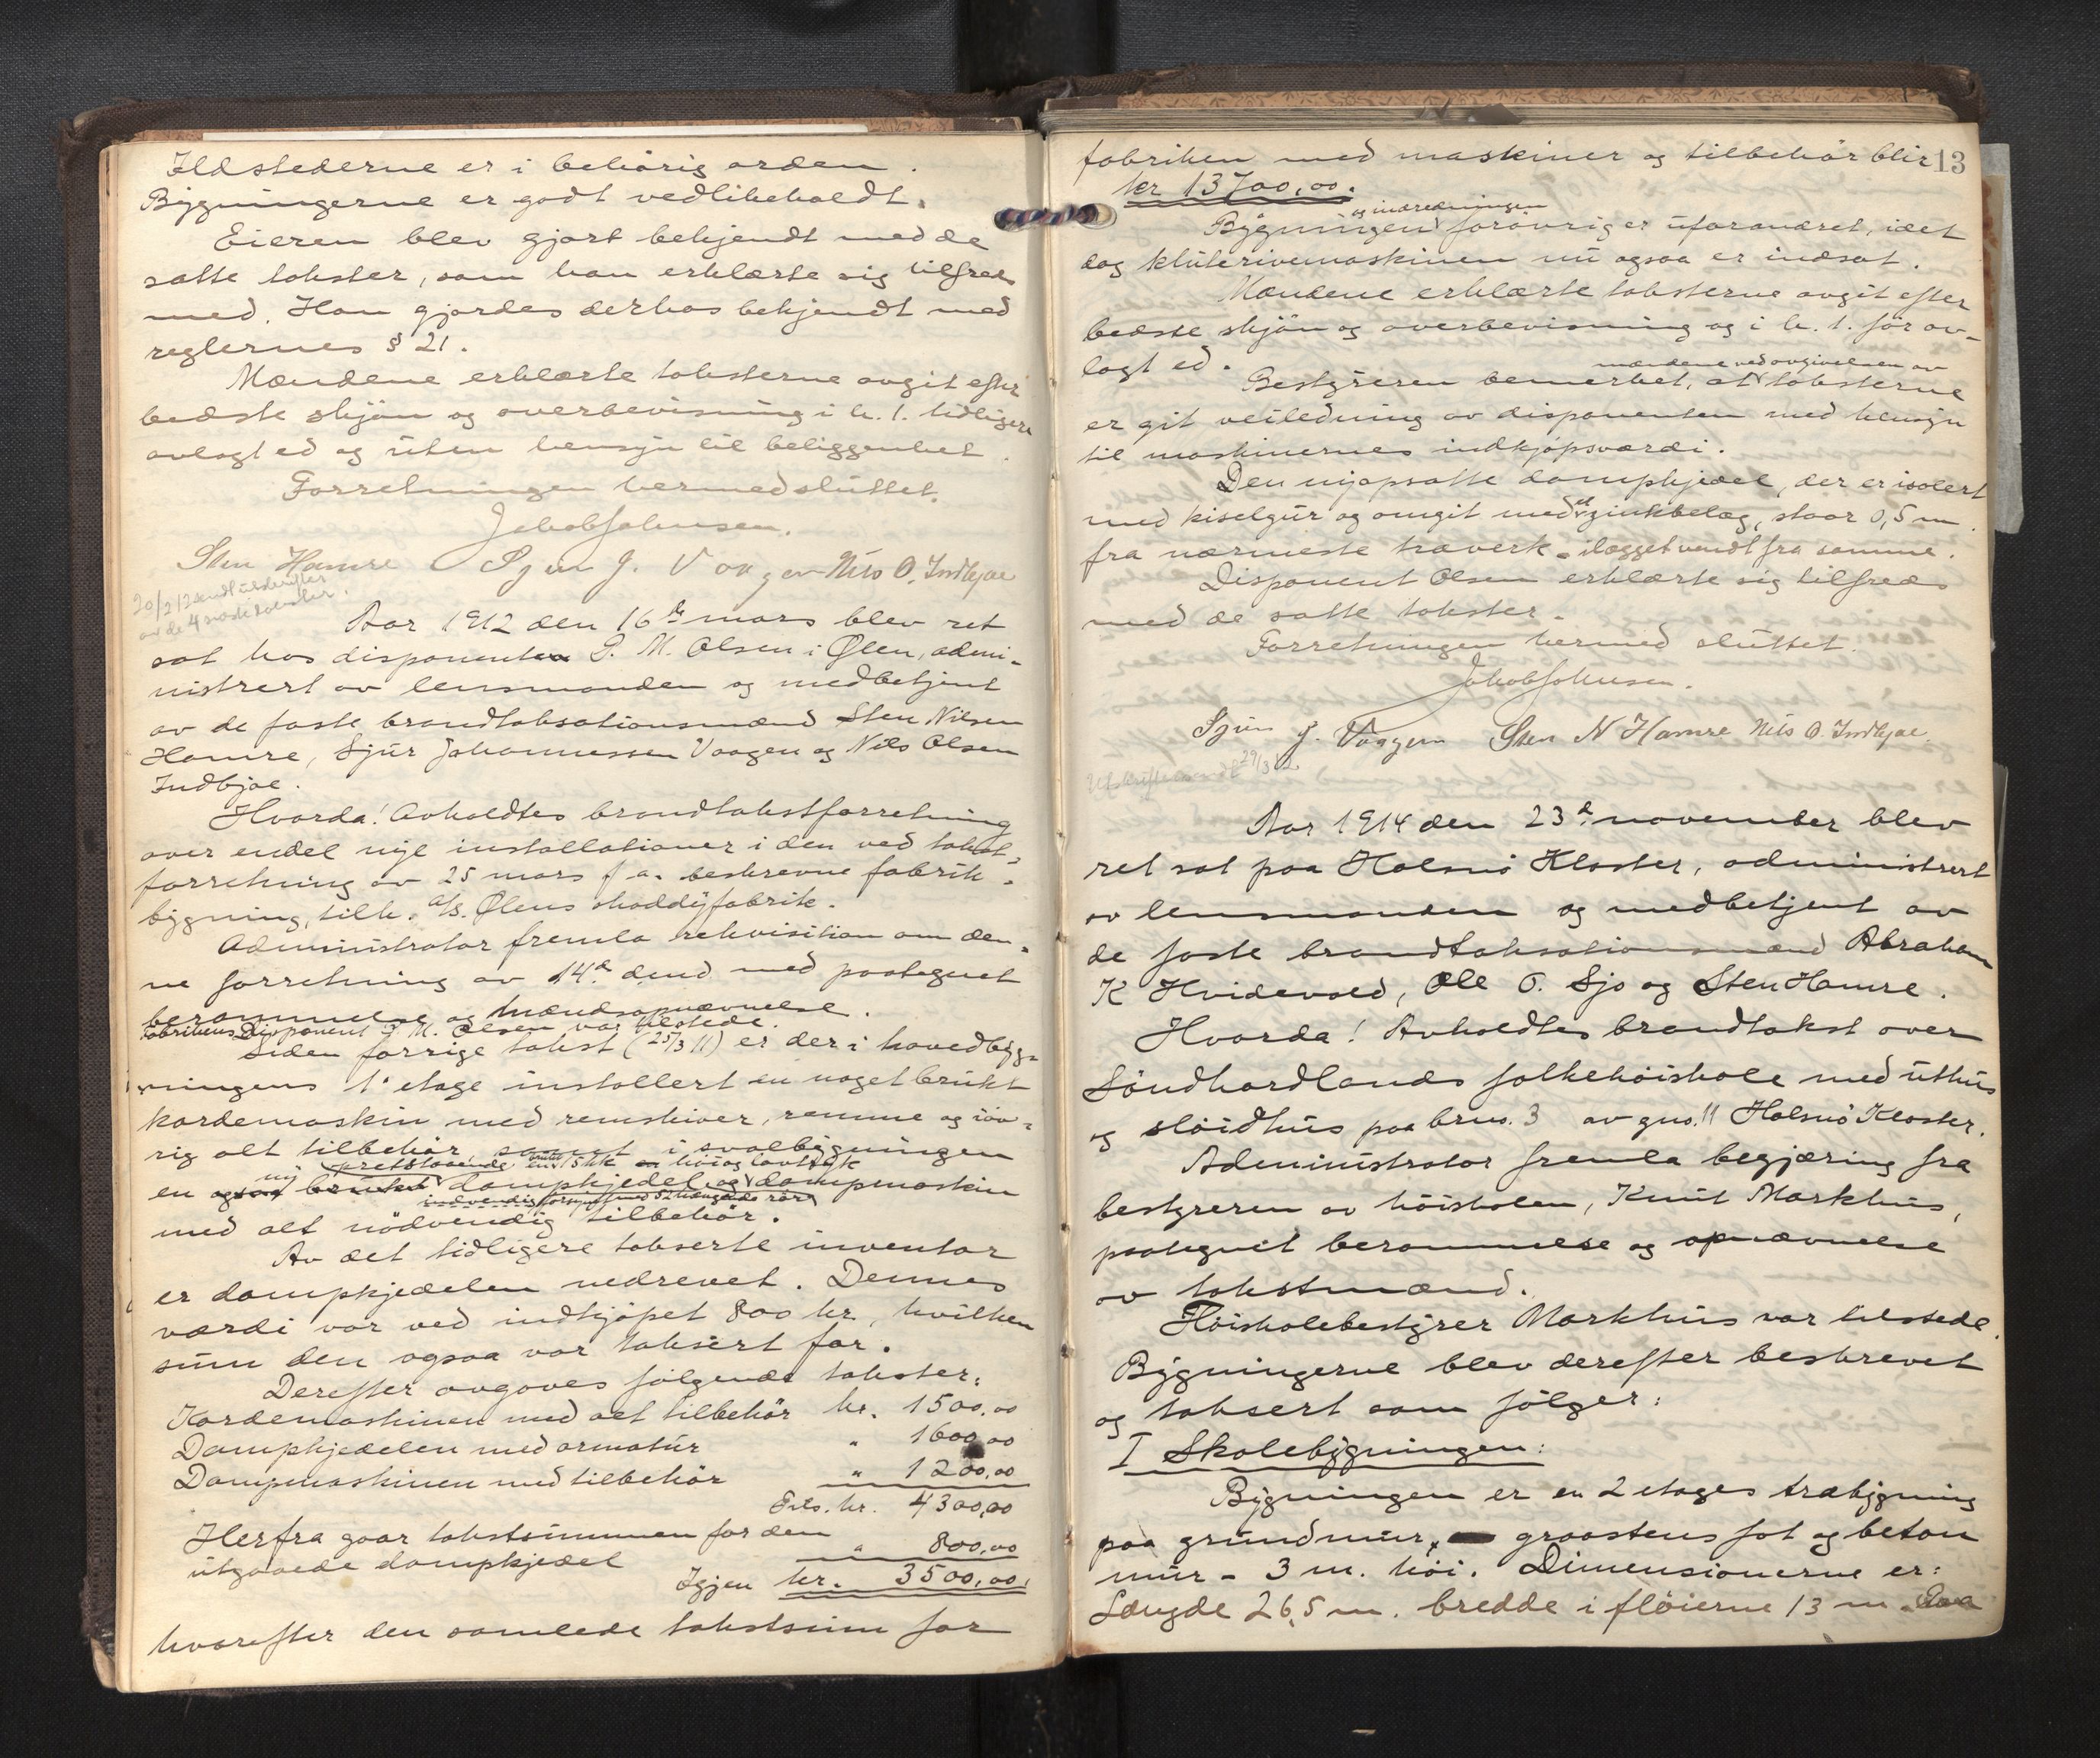 Ildstederne er i behörig orden.
Bygningerne er godt vedlikeholdt.
Eieren blev gjort bekjendt med de
satte takster, som han erklærte sig tilfreds
med. Han gjordes derhos bekjendt med
reglernes § 21.
Mændene erklærte taksterne avgit efter
bedste skjön og overbevisning i h. t. tidligere
avlagt ed og uten hensyn til beliggenhet.
Forretningen hermed sluttet.
Jakob Johnsen.
Sten Hamre Sjur J. Vaagen Nils O. Indbjoe
20/2 12 sendt utskrifter
av de 4 siste takster.
Aar 1912 den 16de mars blev ret
sat hos disponenten P. M. Olsen i Ølen, admi-
nistrert av lensmanden og medbetjent
av de faste brandtaksationsmænd Sten Nilsen
Hamre, Sjur Johannessen Vaagen og Nils Olsen
Indbjoe.
Hvorda! Avholdtes brandtakstforretning
over endel nye installationer i den ved takst-
forretning av 25 mars f a. beskrevne fabrik-
bygning, tilh. A/S. Ølens shoddyfabrik.
Administrator fremla rekvisition om den-
ne forretning av 14de dmd med paategnet
berammelse og mændsopnævnelse.
Fabrikens Disponent P. M. Olsen var tilstede.
Siden forrige takst (25/3 11) er der i hovedbyg-
ningens 1' etage installert en noget brukt
kardemaskin med remskiver, remme og iöv-
rig alt tilbehör samt i svalbygningen
opretstaaende en brukt 15 hk höi og lavtryk
en ny dampkjedel og dampmaskin
indvendig forsynt med 52 hængende rör
med alt nödvendig tilbehör.
Av det tidligere takserte inventar
er dampkjedelen nedrevet. Dennes
værdi var ved indkjöpet 800 kr, hvilken
sum den ogsaa var taksert for.
Derefter avgaves fölgende takster:
Kardemaskinen med alt tilbehör kr. 1500,00
Dampkjedelen med armatur " 1600,00
Dampmaskinen med tilbehör " 1200,00
Tils. kr. 4300,00
Herfra gaar takstsummen for den
utgaaede dampkjedel " 800,00
Igjen kr. 3500,00.
hvorefter den samlede takstsum for
13
fabriken med maskiner og tilbehör blir
kr 13700,00.
og indredningen
Bygningen forövrig er uforandret, idet
dog kluterivemaskinen nu ogsaa er indsat.
Mændene erklærte taksterne avgit efter
bedste skjön og overbevisning og i h. t. för av-
lagt ed.
mændene ved avgivelsen av
Bestyreren bemerket, at taksterne
er git veiledning av disponenten med hensyn
til maskinernes indkjöpsværdi.
Den nyopsatte dampkjedel, der er isolert
med kiselgur og omgit med et zinkbelæg, staar 0,5 m.
fra nærmeste træverk - ilægget vendt fra samme.
Disponent Olsen erklærte sig tilfreds
med de satte takster.
Forretningen hermed sluttet.
Jakob Johnsen.
Sjur J. Vaagen Sten N Hamre Nils O. Indbjoe.
Utskrift sendt 29/3 12.
Aar 1914 den 23de november blev
ret sat paa Halsnö Kloster, administrert
av lensmanden og medbetjent av
de faste brandtaksationsmænd Abraham
K Hvidevold, Ole O. Sjo og Sten Hamre.
Hvorda! Avholdtes brandtakst over
Söndhordlands folkehöiskole med uthus
og slöidhus paa brno. 3 av gno. 11 Halsnö Kloster.
Administrator fremla begjæring fra
bestyreren av höiskolen, Knut Markhus,
paategnet berammelse og opnævnelse
av takstmænd.
Höiskolebestyrer Markhus var tilstede.
Bygningerne blev derefter beskrevet
og taksert som fölger:
I Skolebygningen:
Bygningen er en 2 etages træbygning
paa grundmur, graastens fot og beton
mur - 3 m. höi. Dimensionerne er:
Længde 26,5 m. bredde i flöierne 13 m. Paa